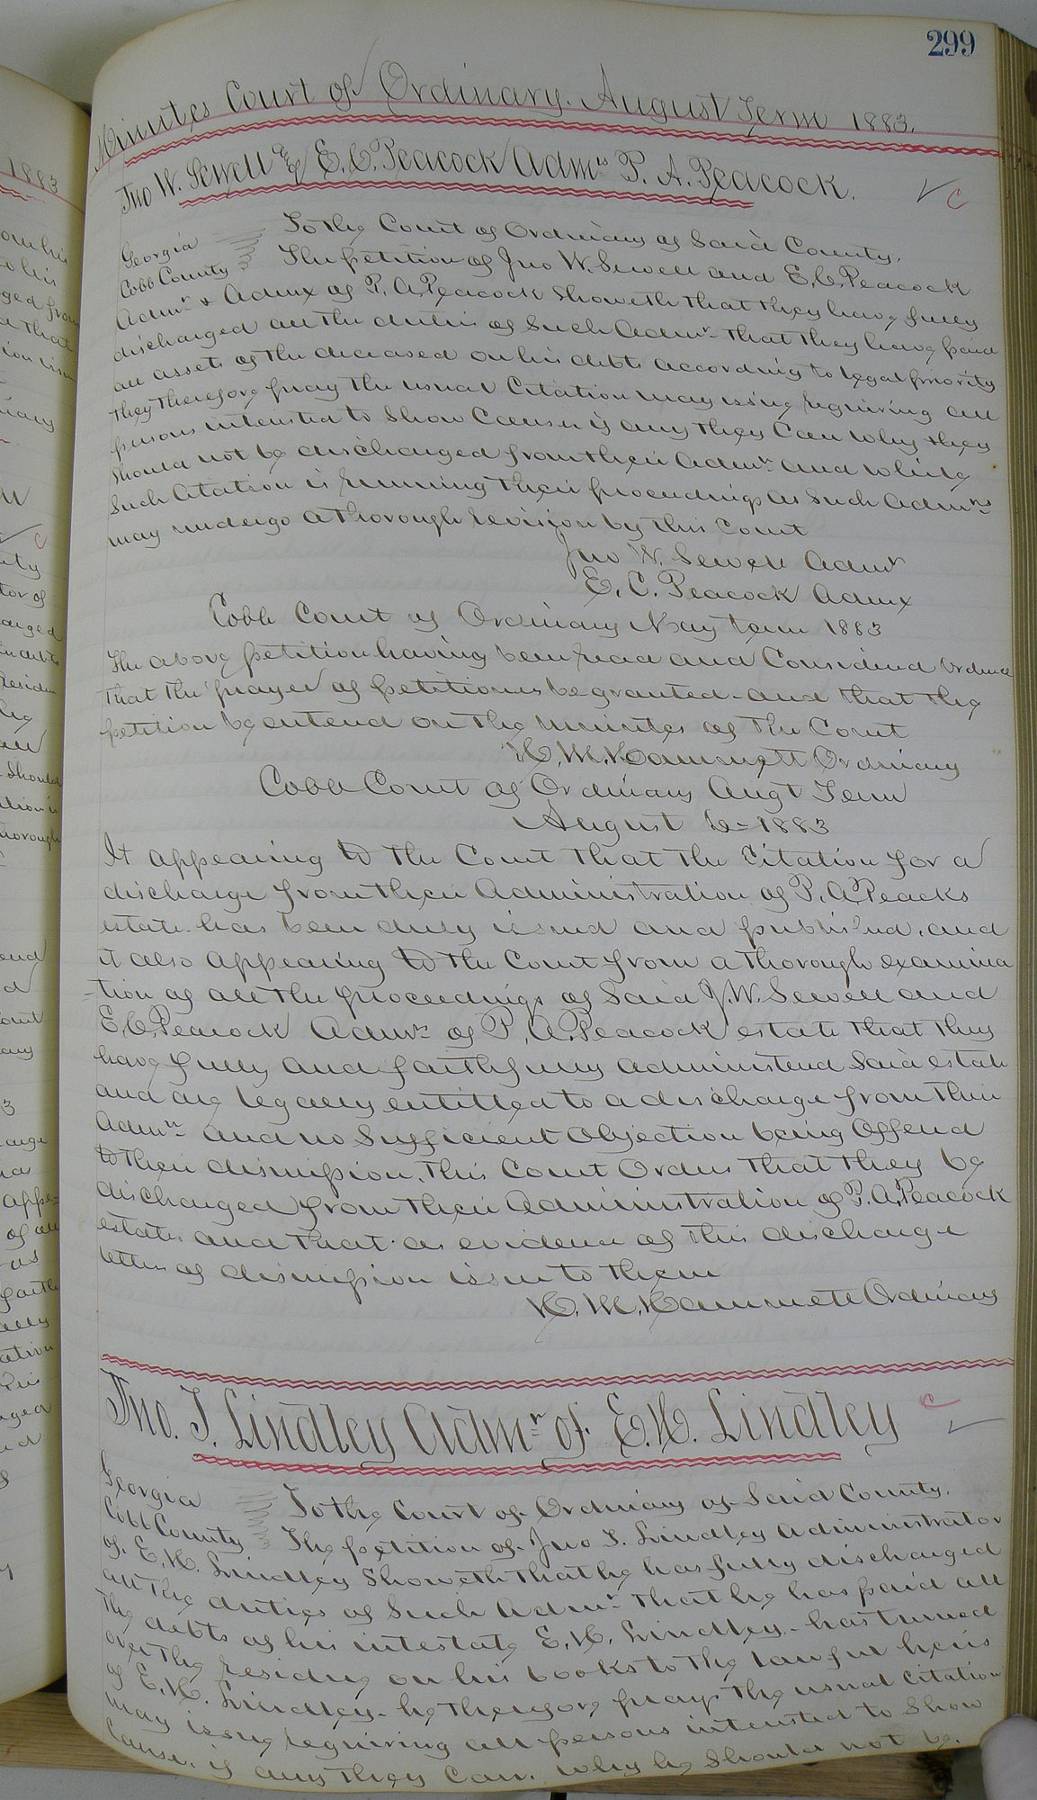 299
Minutes Court of Ordinary. August Term 1883.
Jno W. Sewell & E. C. Peacock Admrs P. A. Peacock.
Georgia To the Court of Ordinary of Said County.
Cobb County The petition of Jno W. Sewell and E. C. Peacock
Admr & Admx of P. A. Peacock Showeth that they have fully
discharged all the duties of Such Admr - that they have paid
all assets of the deceased on his debts according to legal priority
they therefore pray the usual Citation may issue requiring all
persons interested to Show Cause if any they Can why they
Should not be discharged from their Admn and while
Such Citation is running their proceedings as Such Admrs
may undergo a thorough revision by this Court
Jno W. Sewell Admr
E. C. Peacock Admx
Cobb Court of Ordinary May term 1883
The above petition having been read and Considered Ordered
that the prayer of petitioners be granted - and that the
petition be entered on the minutes of the Court
H. M. Hammett Ordinary
Cobb Court of Ordinary Augt Term
August 6 - 1883
It appearing to the Court that the Citation for a
discharge from their Administration of P. A. Peacks
estate has been duly issued and published, and
it also appearing to the Court from a thorough examina
-tion of all the proceedings of Said J. W. Sewell and
E. C. Peacock Admrs of P. A. Peacock estate that they
have fully and faithfully administered Said estate
and are legally entitled to a discharge from their
Admn and no Sufficient Objection being Offered
to their dismission, this Court Orders that they be
discharged from their Administration of P. A. Peacock
estate and that as evidence of this discharge
letters of dismission issue to them
H. M. Hammett Ordinary
Jno. T. Lindley Admr of E. H. Lindley
Georgia To the Court of Ordinary of Said County.
Cobb County The petition of Jno T. Lindley Administrator
of E. H. Lindley Showeth that he has fully discharged
all the duties of Such Admr that he has paid all
the debts of his intestate E. H. Lindley - has turned
over the residue on his books to the lawful heirs
of E. H. Lindley - he therefore prays the usual Citation
may issue requiring all persons interested to Show
Cause, if any they Can. why he Should not be.